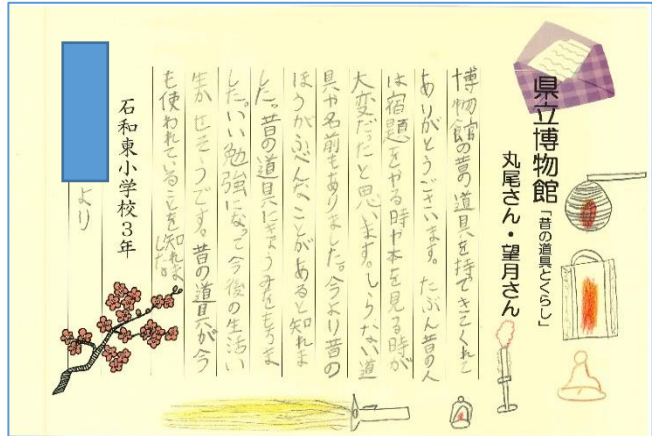 県立博物館「昔の道具とくらし」
丸尾さん・望月さん
博物館の昔の道具を持てきてくれて
ありがとうございます。たぶん昔の人
は宿題をやる時や本を見る時が
大変だったと思います。しらない道
具や名前もありました。今より昔の
ほうがふべんなことがあると知れま
した。昔の道具にきょうみをもちま
した。いい勉強になって今後の生活い
生かせそうです。昔の道具が今
も使われていることを知れま
した。
石和東小学校3年
より